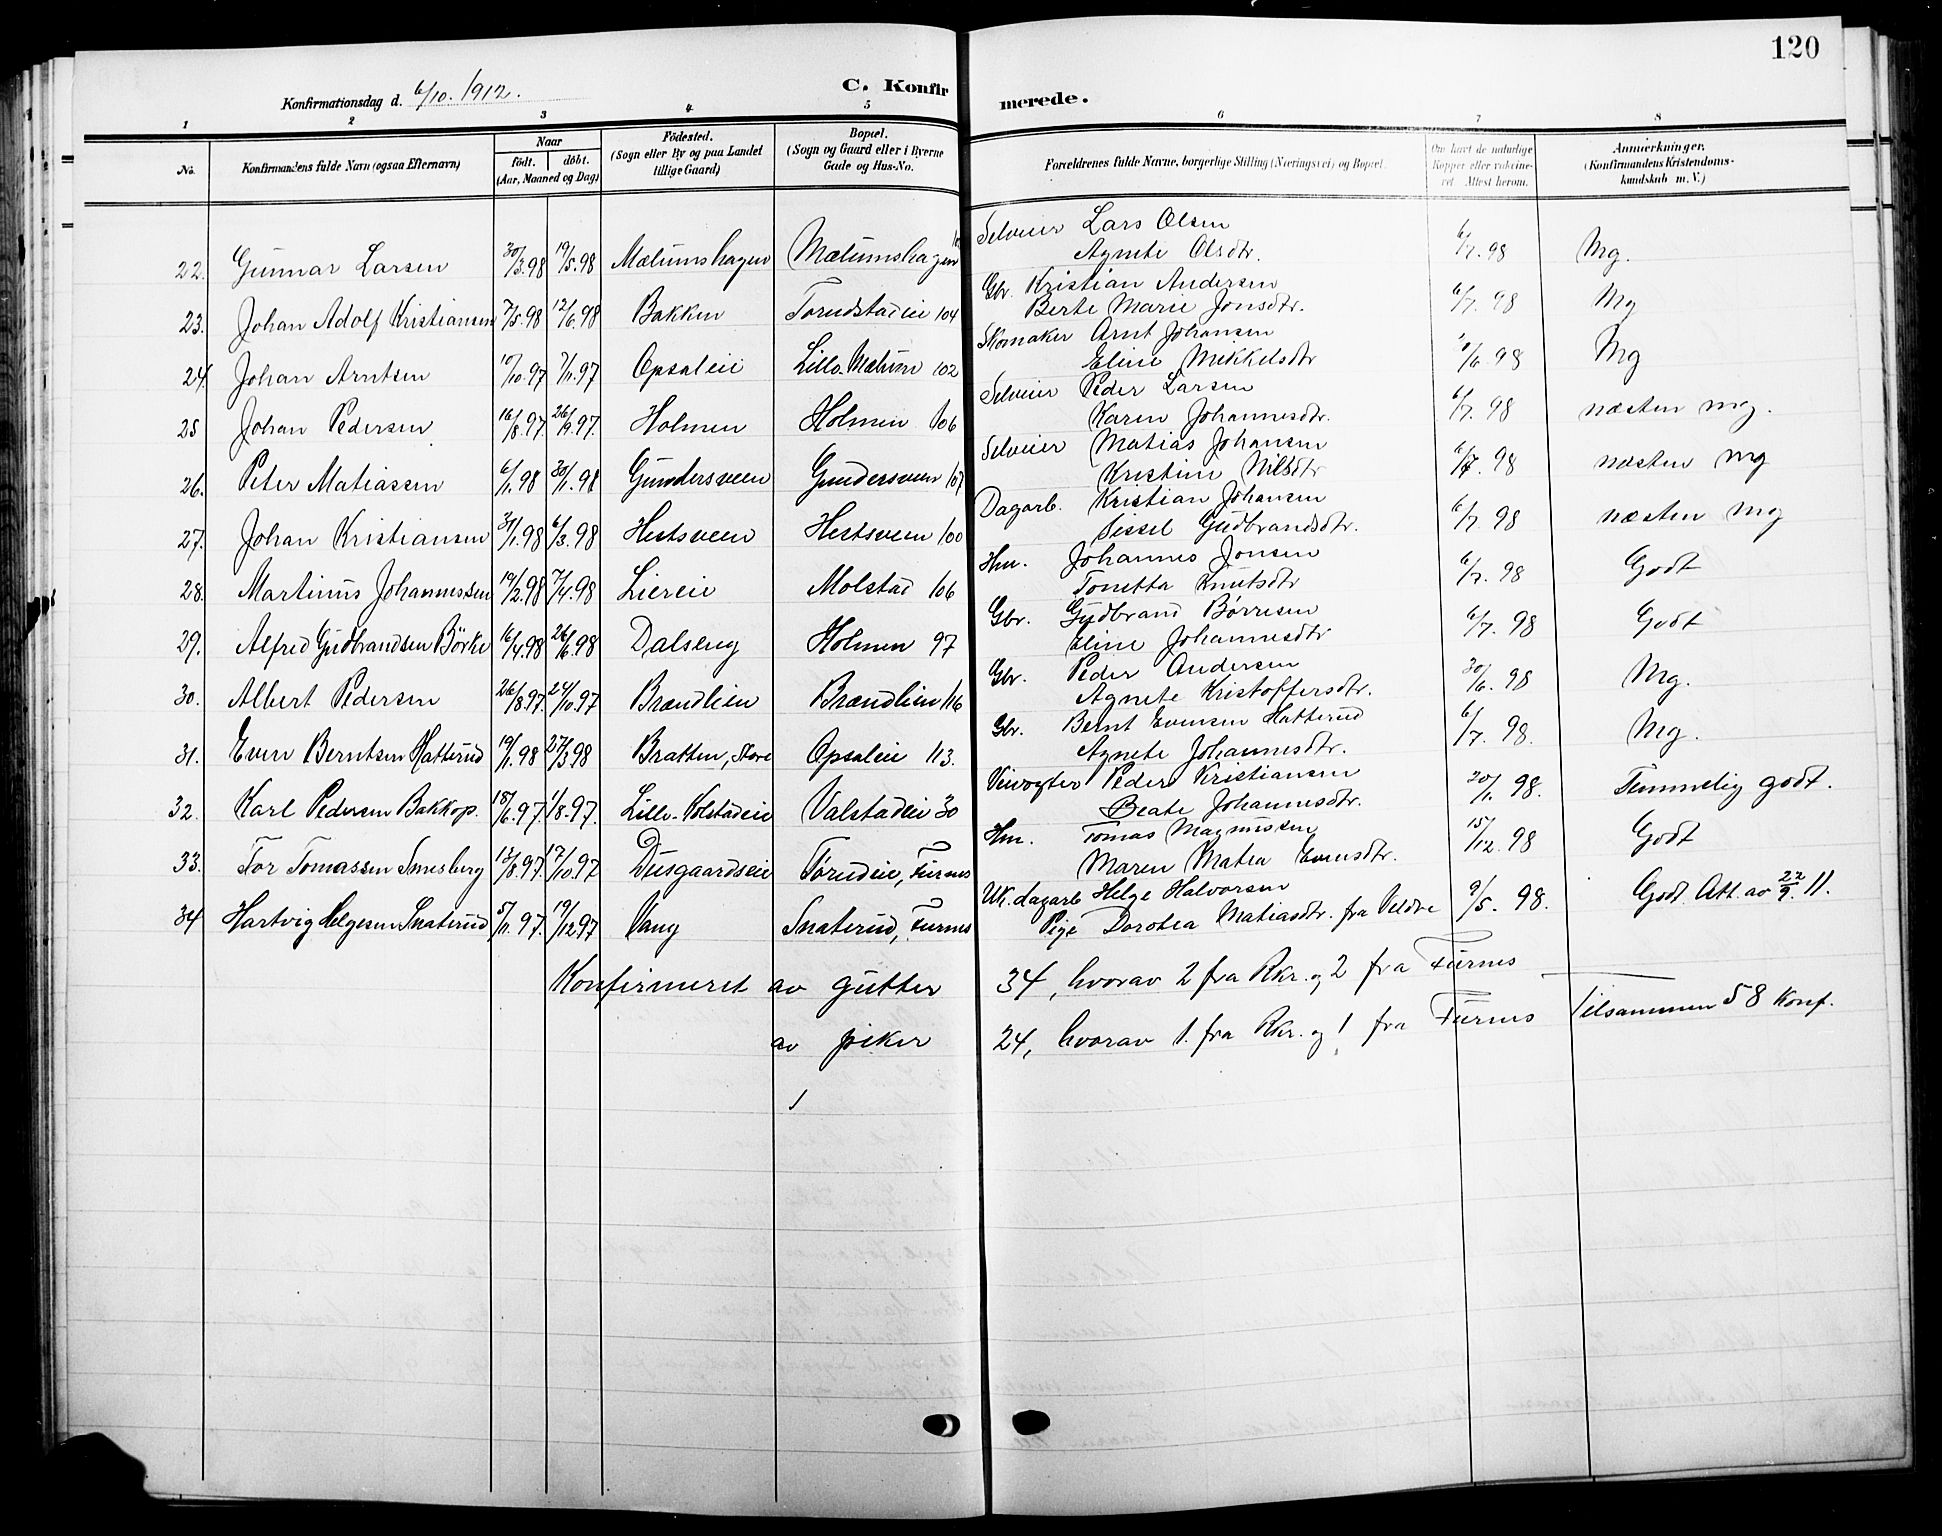 120
Konfirmationsdag d. 6/10. 1912.
C. Konfirmerede.
1 2 3 4 5 6 7 8
No.
Konfirmandens fulde Navn (ogsaa Efternavn)
Naar
födt. döbt.
(Aar, Maaned og Dag)
Födested.
(Sogn eller By og paa Landet
tillige Gaard)
Bopæl.
(Sogn og Gaard eller i Byerne
Gade og Hus-No.
Forældrenes fulde Navne, borgerlige Stilling (Næringsvei) og Bopæl.
Om havt de naturlige
Kopper eller vaccine-
ret. Attest herom.
Anmærkninger.
(Konfirmandens Kristendoms-
kundskab m. V.)
22. Gunnar Larsen 30/3.98 19/5.98 Mælumshagen Mælumshagen Selveier Lars Olsen Agnete Olsdtr. 6/7.98 Mg.
23. Johan Adolf Kristiansen 7/5.98 12/6.98 Bakken Torudstadeie 104 Gbr. Kristian Andersen Berte Marie Jonsdtr. 6/7.98 Mg
24. Johan Arntsen 10/10.97 7/11.97 Opsaleie Lille Mælum 102 Skomaker Arnt Johansen Eline Mikkelsdtr 98 Mg
25 Johan Pedersen 16/8.97. 26/9.97. Holmen Holmen 106 Selveier Peder Larsen Karen Johannesdtr. 6/7.98 næsten mg.
26. Peter Matiassen 6/1.98 30/1.98 Gundersveen Gundersveen 107 Selveier Matias Johansen Kristine Nilsdtr 6/7.98 næsten mg
27. Johan Kristiansen 31/1.98 6/3.98 Hestsveen Hestsveen 100 Dagarb. Kristian Johansen Sissel Gudbrandsdtr. 6/7.98 næsten mg
28. Martinus Johannessen 19/2.98 7/4.98 Liereie Molstad 106 Hm. Johannes Jonsen Tonetta Knutsdtr 6/7.98 Godt
29. Alfred Gudbrandsen Börke 16/4.98 26/6.98 Dalseng Holmen 97 Gbr. Gudbrand Börresen Eline Johannesdtr 6/7.98 Godt
30. Albert Pedersen 26/8.97. 24/10.97 Brændlien Brændlien 116 Gbr. Peder Andersen Agnete Kristoffersdtr. 30/6.98 Mg.
31. Even Berntsen Hatterud 19/1.98 27/3 98 Bratten, store Opsaleie 113. Gbr. Bernt Evensen Hatterud Agnete Johannesdtr. 6/7.98. Mg.
32. Karl Pedersen Bakkop. 18/6.97. 1/8.97. Lille-Kolstadeie Valstadeie 30 Veivogter Peder Kristiansen Beate Johannesdtr. 20/1.98. Temmelig godt.
33. Tor Tomassen Smesberg 13/8.97. 17/10.97 Deisgaardseie Tørudeie, Furnes Hm. Tomas Magnussen Maren Matea Evensdtr. 15/12.98 Godt
34 Hartvig Helgesen Snaterud 5/11.97. 19/12 97 Vang Snaterud, Furnes Uk. dagarb Helge Halvorsen Pige Dorotea Matiasdtr. fra Veldre 9/5.98. Godt. Att. av 22/9.11.
Konfirmeret av gutter 34, hvorav 2 fra Rkr. og 2 fra Furnes
av piker 24, hvorav 1. fra Rkr. og 1 fra Furnes Tilsammen 58 Konf.